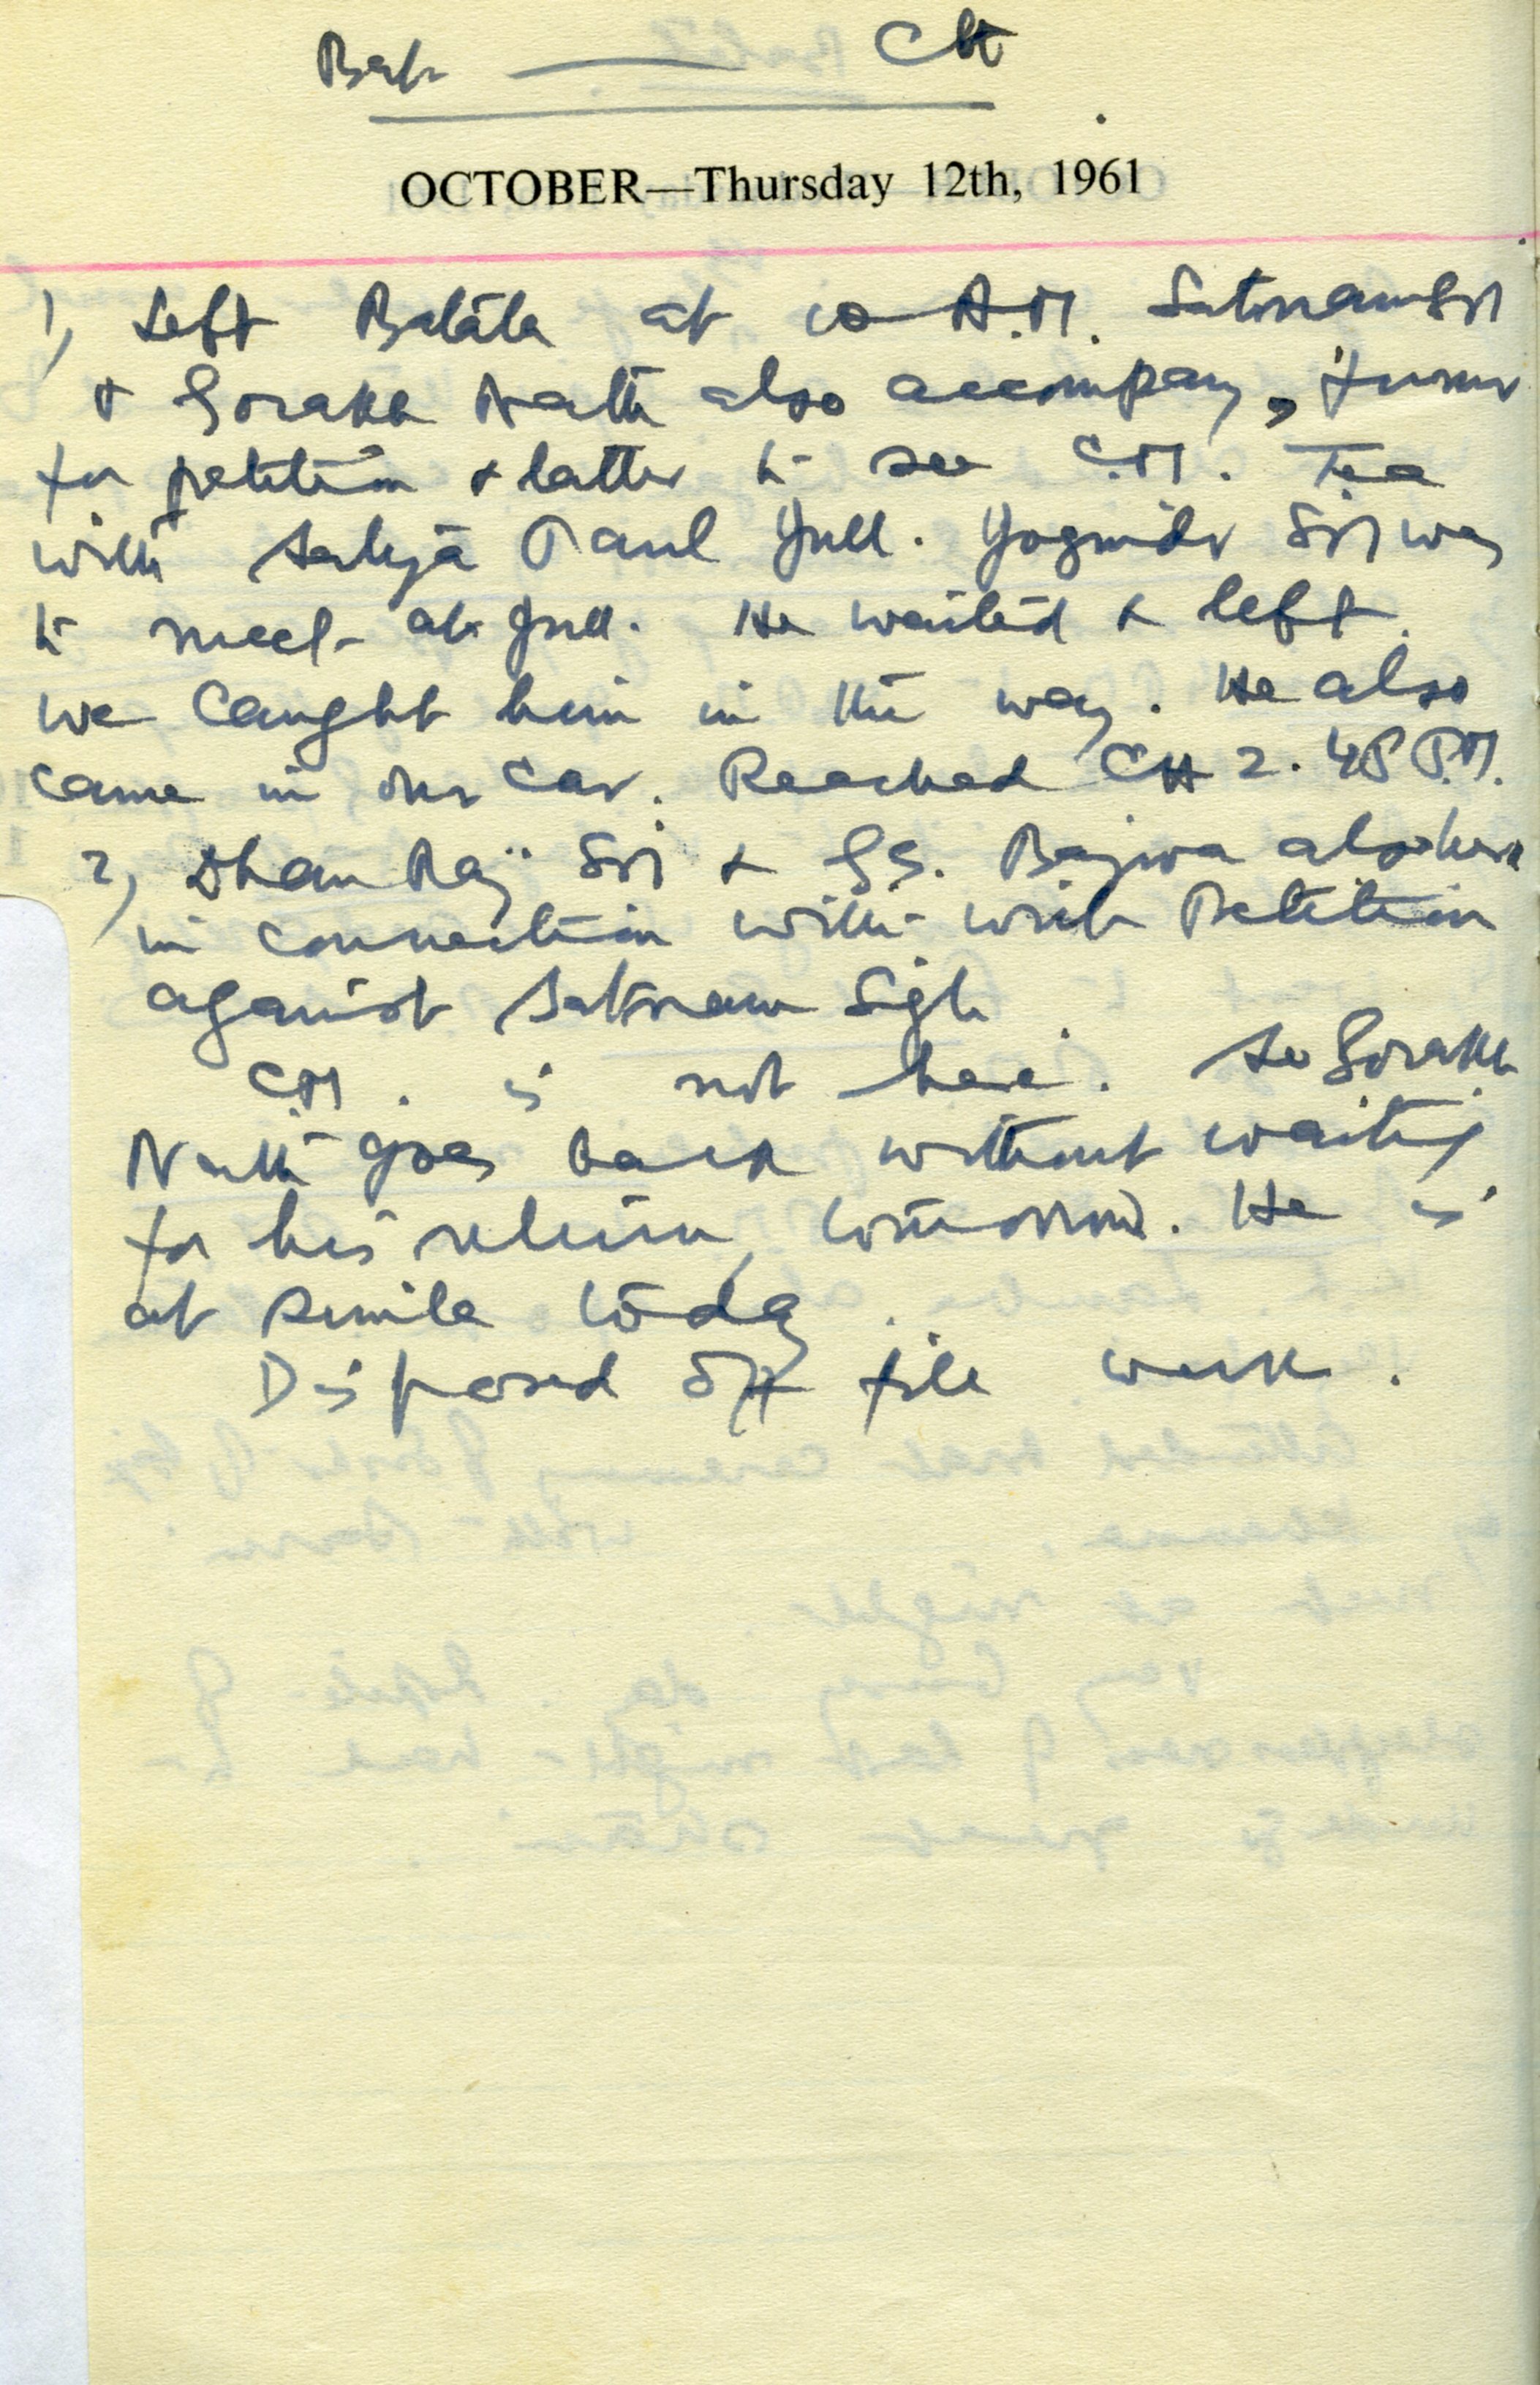 CH
OCTOBER—Thursday 12th, 1961
1) Left Batala at 10 A.M. Satnam
& Gorakh Nath also accompany, former
for petition & latter to see C.M. Tea
with Satya Paul Jull. Yoginder was
to meet at Jull. He waited & left.
We caught him in the way. He also
came in our car. Reached CH 2.45 P.M.
2) Dhan Raj & G.S. Bajwa also here
in connection with writ Petition
against Satnam Sigh
C.M. is not here. So Gorakh
Nath goes back without waiting
for his return tomorrow. He is
at Simla today.
Disposed off file work.